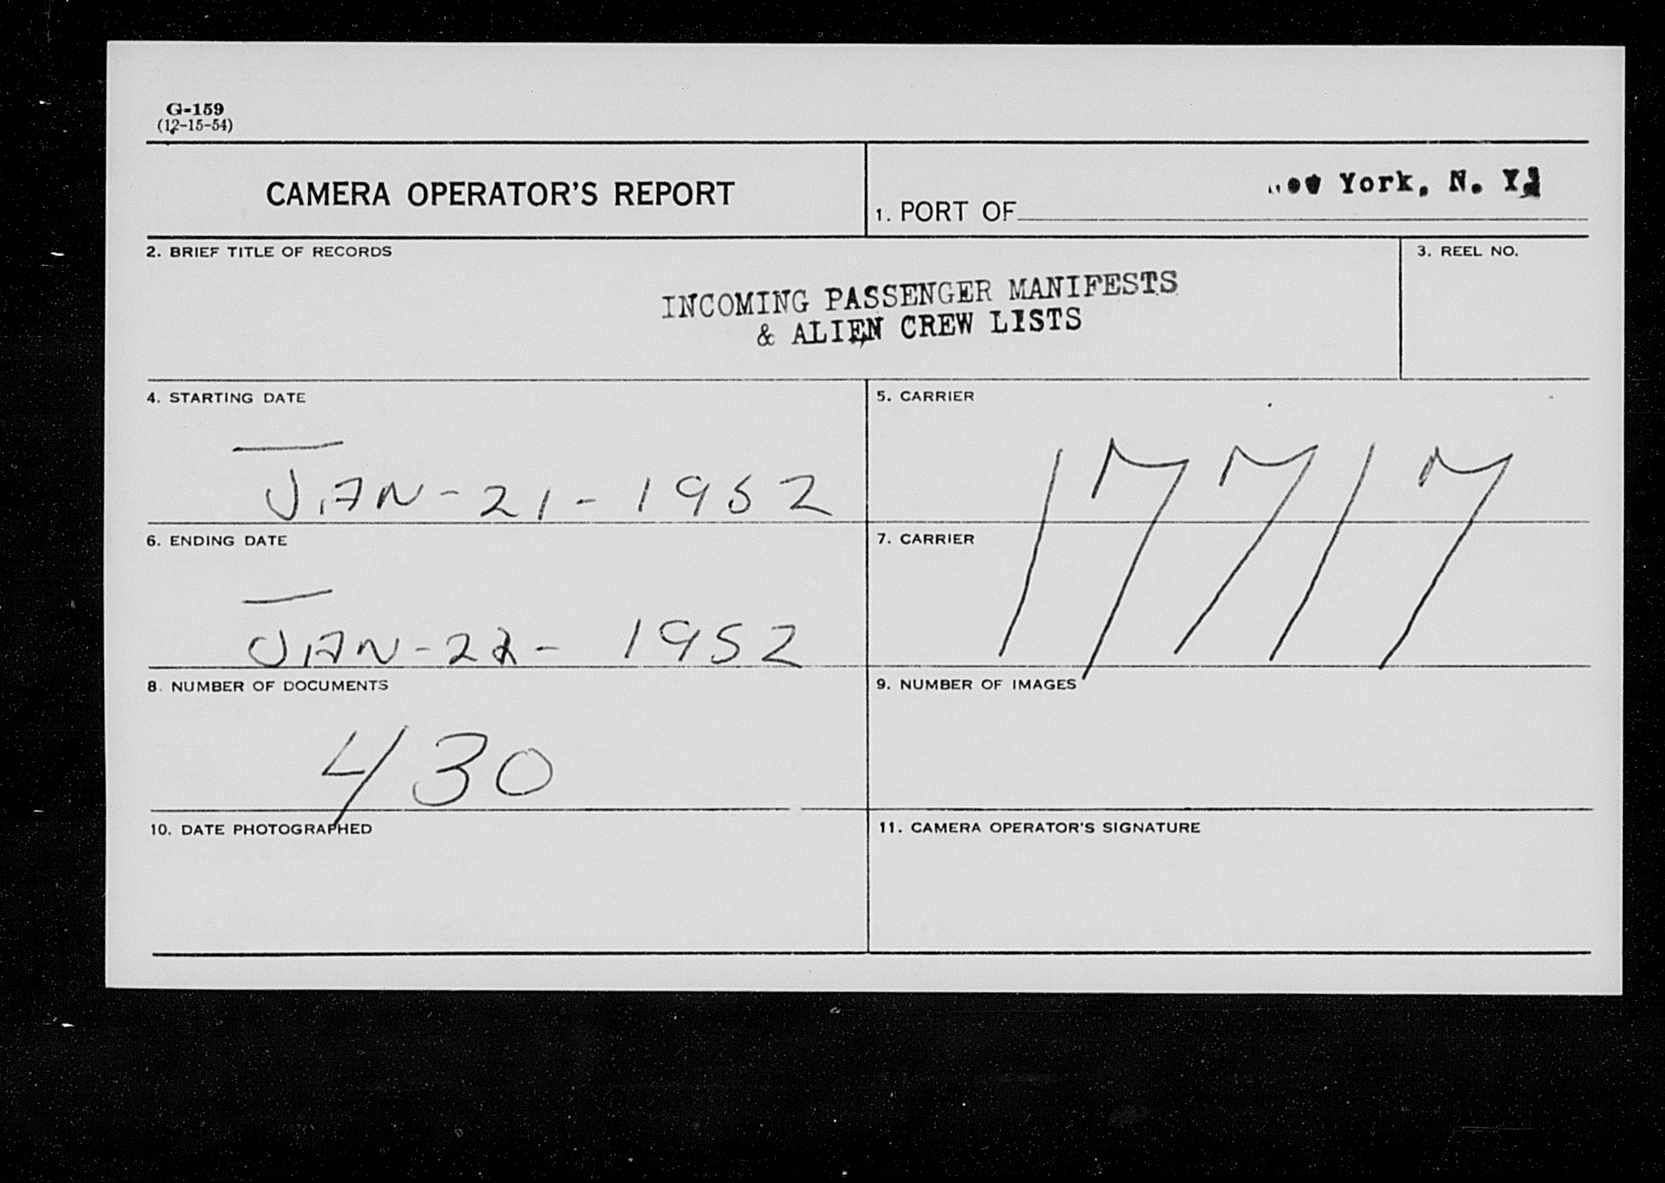 G-159
(12-15-54)
CAMERA OPERATOR'S REPORT
1. PORT OF New York, N. Y.
2. BRIEF TITLE OF RECORDS
INCOMING PASSENGER MANIFESTS
& ALIEN CREW LISTS
3. REEL NO.
4. STARTING DATE
JAN-21-1952
5. CARRIER
17717
6. ENDING DATE
JAN-22-1952
7. CARRIER
8. NUMBER OF DOCUMENTS
430
9. NUMBER OF IMAGES
10. DATE PHOTOGRAPHED
11. CAMERA OPERATOR'S SIGNATURE